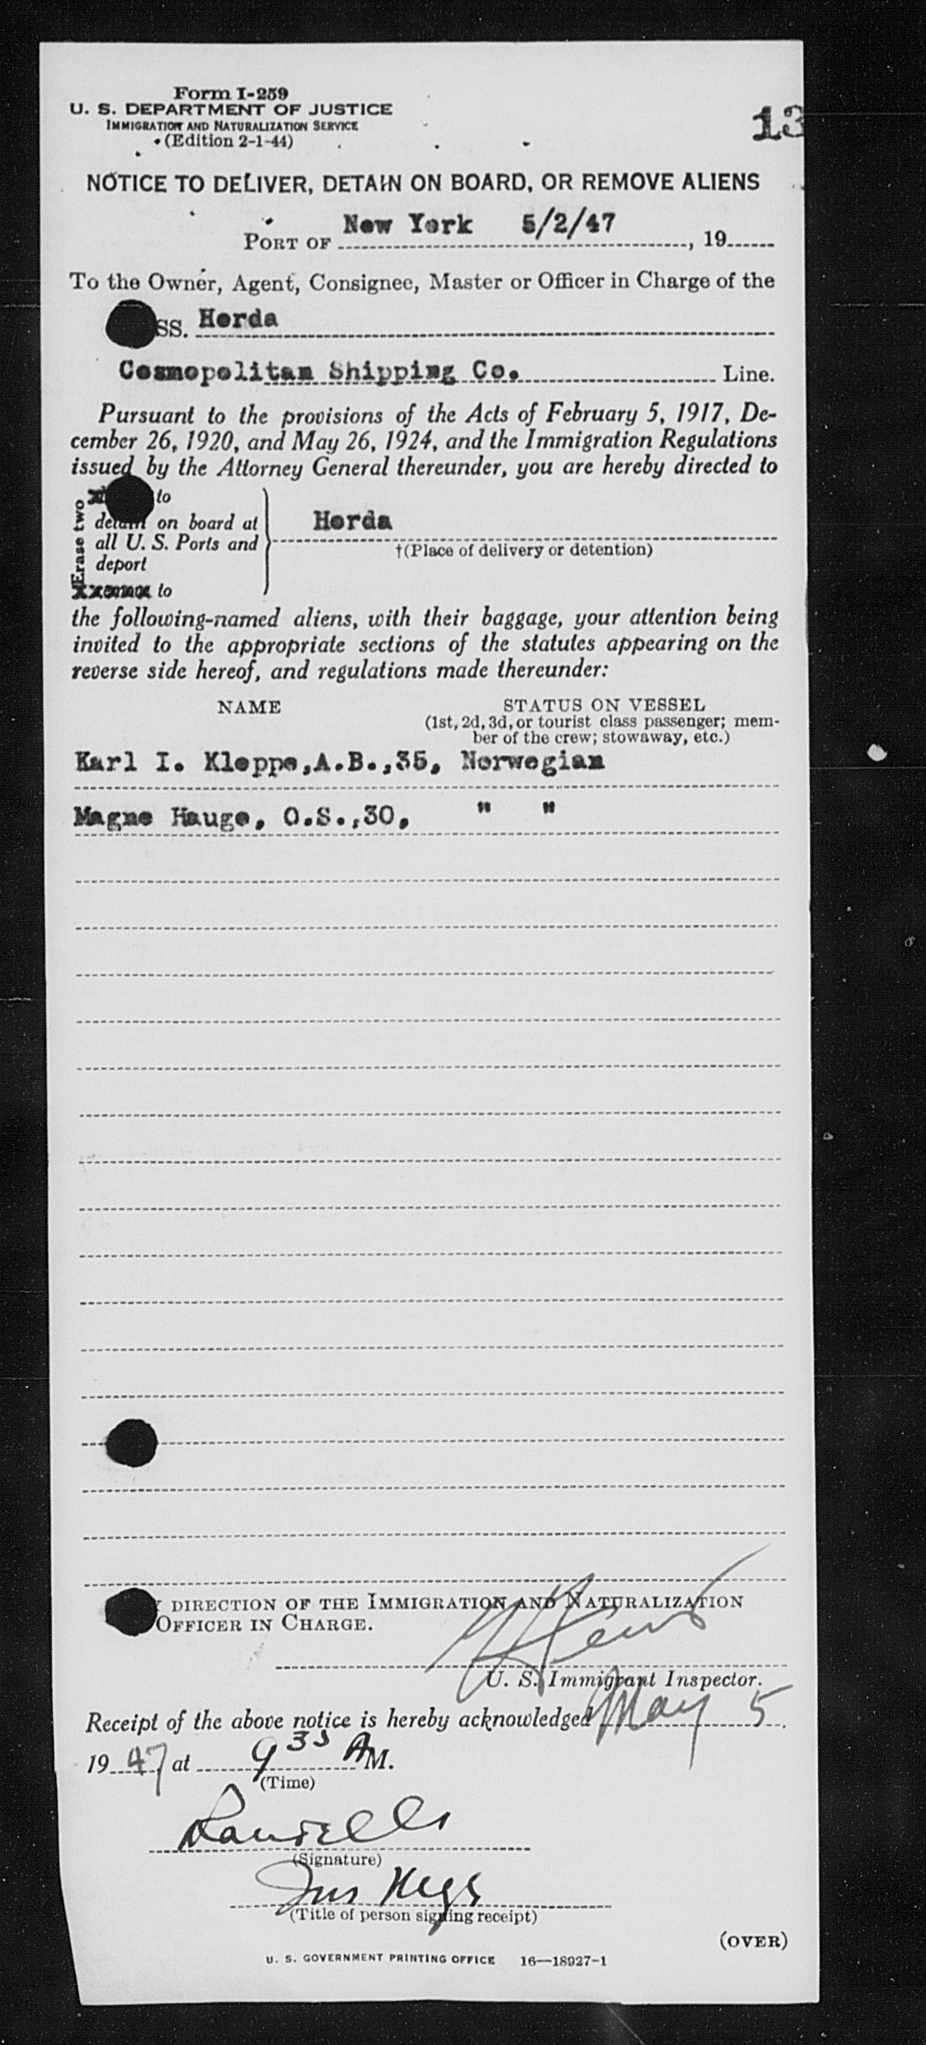 Form I-259
U. S. DEPARTMENT OF JUSTICE
IMMIGRATION AND NATURALIZATION SERVICE
(Edition 2-1-44)
13
NOTICE TO DELIVER, DETAIN ON BOARD, OR REMOVE ALIENS
PORT OF New York 5/2/47, 19
To the Owner, Agent, Consignee, Master or Officer in Charge of the
SS. Horda
Cosmopolitan Shipping Co. Line.
Pursuant to the provisions of the Acts of February 5, 1917, De-
cember 26, 1920, and May 26, 1924, and the Immigration Regulations
issued by the Attorney General thereunder, you are hereby directed to
Erase two
to
detain on board at
all U. S. Ports and
deport
to
Horda
†(Place of delivery or detention)
the following-named aliens, with their baggage, your attention being
invited to the appropriate sections of the statutes appearing on the
reverse side hereof, and regulations made thereunder:
NAME STATUS ON VESSEL
(1st, 2d, 3d, or tourist class passenger; mem-
ber of the crew; stowaway, etc.)
Karl I. Kleppe, A.B., 35, Norwegian
Magne Hauge, O.S., 30, " "
DIRECTION OF THE IMMIGRATION AND NATURALIZATION
OFFICER IN CHARGE.
U. S. Immigrant Inspector.
Receipt of the above notice is hereby acknowledged May 5,
19 47, at 9 35 AM.
(Time)
(Signature)
(Title of person signing receipt)
(OVER)
U. S. GOVERNMENT PRINTING OFFICE 16—18927-1